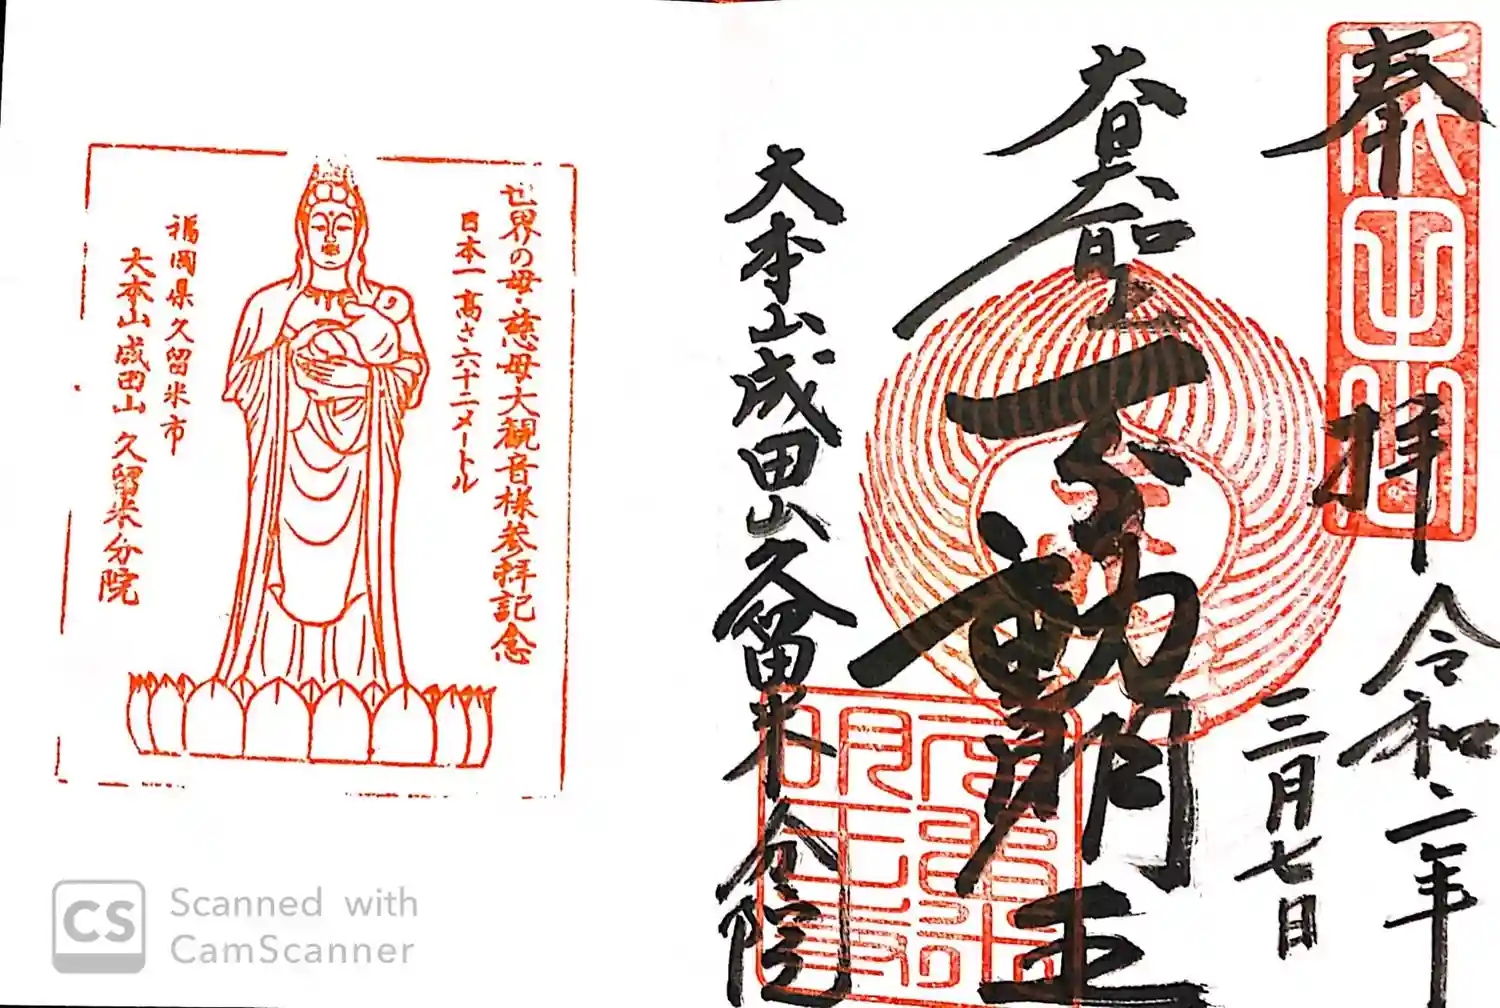 成田山
奉拝
令和二年
三月七日
大日大聖不動明王
大本山成田山久留米分院
世界の母・慈母大観音様参拝記念
日本一高さ六十二メートル
福岡県久留米市
大本山成田山 久留米分院
CS
Scanned with
CamScanner